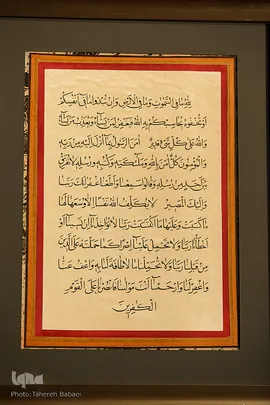 لله ما في السموات وما في الأرض وإن تبدوا ما في أنفسكم
أو تخفوه يحاسبكم به الله فيغفر لمن يشاء ويعذب من يشاء
والله على كل شيء قدير آمن الرسول بما أنزل إليه من ربه
والمؤمنون كل آمن بالله وملئكته وكتبه ورسله لا نفرق
بين أحد من رسله وقالوا سمعنا وأطعنا غفرانك ربنا
وإليك المصير لا يكلف الله نفسا إلا وسعها لها
ما كسبت وعليها ما اكتسبت ربنا لا تؤاخذنا إن نسينا أو
أخطأنا ربنا ولا تحمل علينا إصرا كما حملته على الذين
من قبلنا ربنا ولا تحملنا ما لا طاقة لنا به واعف عنا
واغفر لنا وارحمنا أنت مولنا فانصرنا على القوم
الكفرين
iqna
Photo: Tahereh Babaei